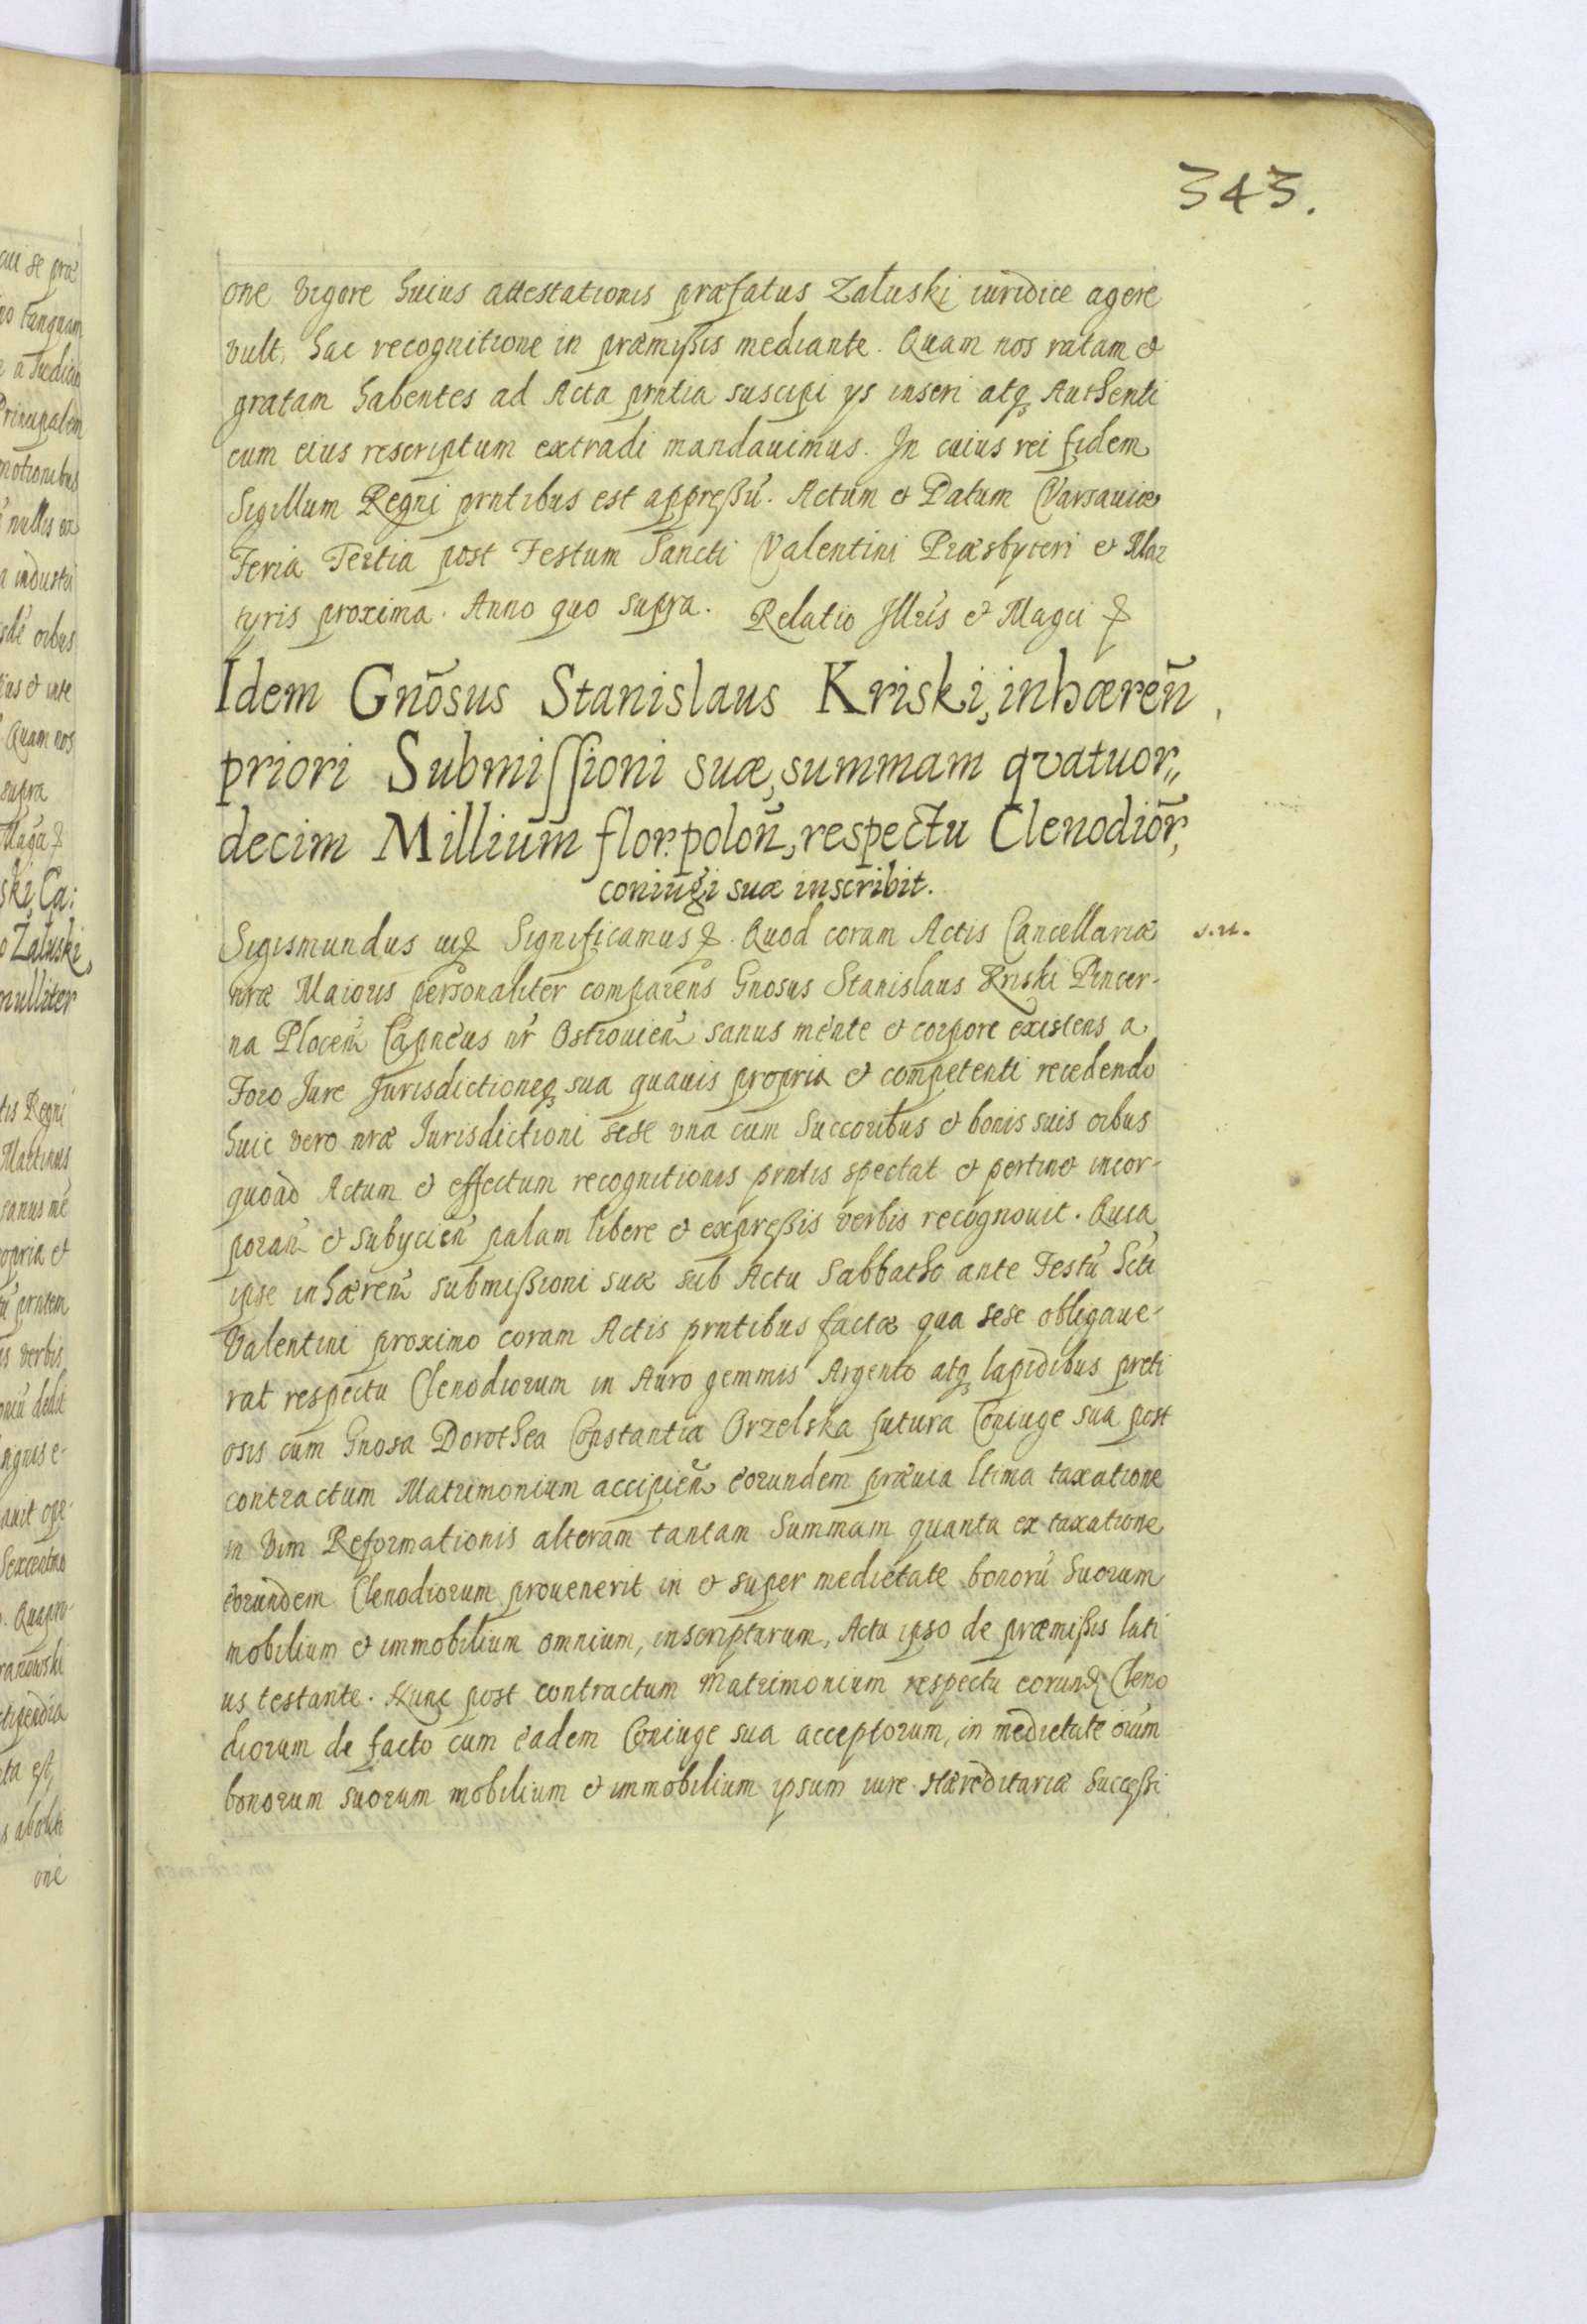 343.
one vigore huius attestationis præfatus Załuski iuridice agere
vult, hac recognitione in præmißis mediante. Quam nos ratam et
gratam habentes ad Acta prntia suscipi ys inseri atq Authenti
cum eius rescriptum extradi mandauimus. In cuius rei fidem
Sigillum Regni prntibus est appreßū. Actum et Datum Varsauiæ
Feria Tertia post Festum Sancti Valentini Præsbyteri et Mar
tyris proxima. Anno quo supra. Relatio Illris et Magci
Idem Gnōsus Stanislaus Kriski, inhæreñ
priori Submissioni suæ, summam qvatuor„
decim Millium flor. poloñ, respectu Clenodior̃,
coniugi suæ inscribit.
Sigismundus Significamus. Quod coram Actis Cancellariæ s.n.
nræ Maioris personaliter comparens Gnosus Stanislaus Kriski Pincer-
na Plocen̄ Capneus nr̄ Ostrouien̄ sanus mente et corpore existens a
Foro Jure Jurisdictioneq sua quauis propria et competenti recedendo
huic vero nræ Jurisdictioni sese vna cum Succoribus et bonis suis oibus
quoad Actum et effectum recognitionis prntis spectat et pertinet incor-
poran̄ et subycien̄ palam libere et expreßis verbis recognouit. Quia
ipse inhæren̄ submißioni suæ sub Actu Sabbatho ante Festū Scti
Valentini proximo coram Actis prntibus factæ qua sese obligaue-
rat respectu Clenodiorum in Auro gemmis Argento atq lapidibus preti
osis cum Gnosa Dorothea Constantia Orzelska futura Coniuge sua post
contractum Matrimonium accipien̄ eorundem præuia ltima taxatione
in vim Reformationis alteram tantam Summam quanta ex taxatione
eorundem Clenodiorum prouenerit in et super medietate bonorū Suorum
mobilium et immobilium omnium, inscripturum, Actu ipso de præmißis lati
us testante. Nunc post contractum Matrimonium respectu eorund Cleno
diorum de facto cum eadem Coniuge sua acceptorum, in medietate oium
bonorum suorum mobilium et immobilium ipsum iure Hæreditariæ Successi